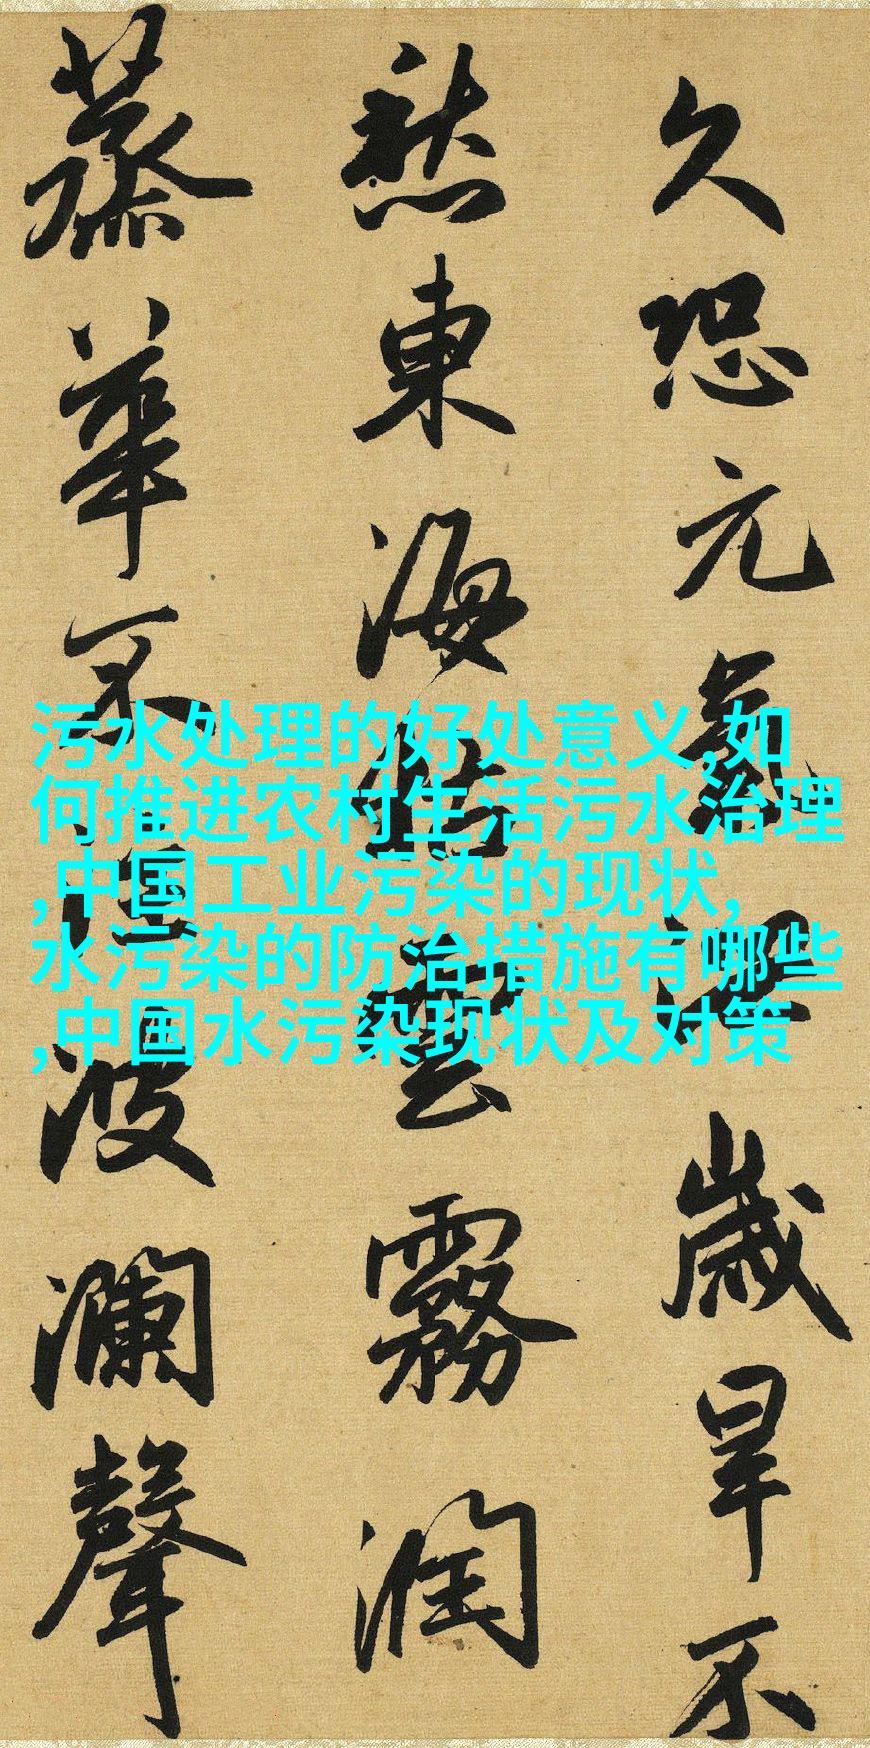 久恐元氣泄歲旱不
愁東海枯雲霧潤
蒸華不注波瀾聲
污水处理的好处意义,如
何推进农村生活污水治理
,中国工业污染的现状,
水污染的防治措施有哪些
,中国水污染现状及对策